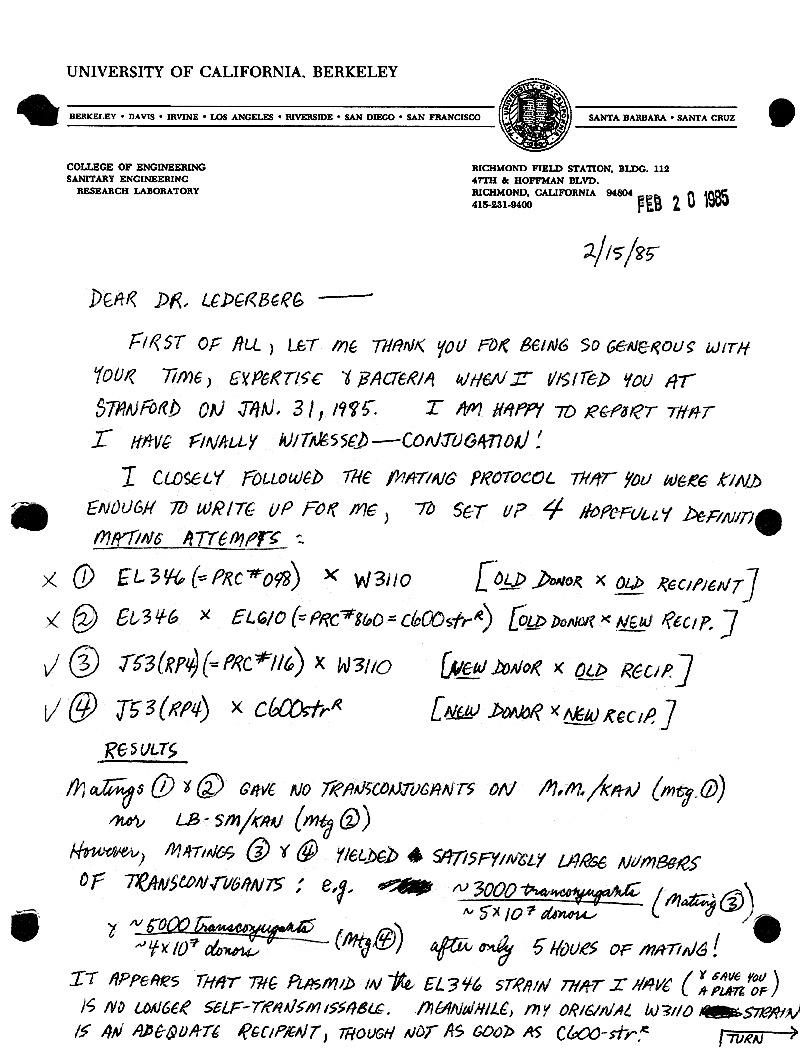 UNIVERSITY OF CALIFORNIA, BERKELEY
BERKELEY • DAVIS • IRVINE • LOS ANGELES • RIVERSIDE • SAN DIEGO • SAN FRANCISCO
SANTA BARBARA • SANTA CRUZ
COLLEGE OF ENGINEERING
SANITARY ENGINEERING
RESEARCH LABORATORY
RICHMOND FIELD STATION, BLDG. 112
47TH & HOFFMAN BLVD.
RICHMOND, CALIFORNIA 94804
415-231-9400
FEB 20 1985
2/15/85
DEAR DR. LEDERBERG —
FIRST OF ALL, LET ME THANK YOU FOR BEING SO GENEROUS WITH
YOUR TIME, EXPERTISE & BACTERIA WHEN I VISITED YOU AT
STANFORD ON JAN. 31, 1985. I AM HAPPY TO REPORT THAT
I HAVE FINALLY WITNESSED—CONJUGATION!
I CLOSELY FOLLOWED THE MATING PROTOCOL THAT YOU WERE KIND
ENOUGH TO WRITE UP FOR ME, TO SET UP 4 HOPEFULLY DEFINITI
MATING ATTEMPTS:
X ① EL346 (=PRC#098) X W3110 [OLD DONOR X OLD RECIPIENT]
X ② EL346 X EL610 (=PRC#860=C600strR) [OLD DONOR X NEW RECIP.]
✓ ③ J53(RP4)(=PRC#116) X W3110 [NEW DONOR X OLD RECIP.]
✓ ④ J53(RP4) X C600strR [NEW DONOR X NEW RECIP.]
RESULTS
Matings ① & ② GAVE NO TRANSCONJUGANTS ON M.M./KAN (mtg. ①)
nor LB-SM/KAN (mtg ②)
However, MATINGS ③ & ④ YIELDED SATISFYINGLY LARGE NUMBERS
OF TRANSCONJUGANTS: e.g. ~3000 transconjugants / ~5×10⁷ donors (Mating ③)
& ~5000 transconjugants / ~4×10⁷ donors (Mtg ④) after only 5 HOURS OF MATING!
IT APPEARS THAT THE PLASMID IN the EL346 STRAIN THAT I HAVE (& GAVE YOU A PLATE OF)
IS NO LONGER SELF-TRANSMISSABLE. MEANWHILE, MY ORIGINAL W3110 STRAIN
IS AN ADEQUATE RECIPIENT, THOUGH NOT AS GOOD AS C600-strR
TURN